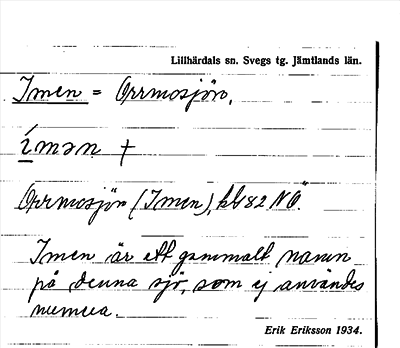 Lillhärdals sn. Svegs tg. Jämtlands län.
Imen = Orrmosjön,
íman †
Orrmosjön (Imen), kbl 82 NÖ.
Imen är ett gammalt namn
på denna sjö, som ej användes
numera.
Erik Eriksson 1934.